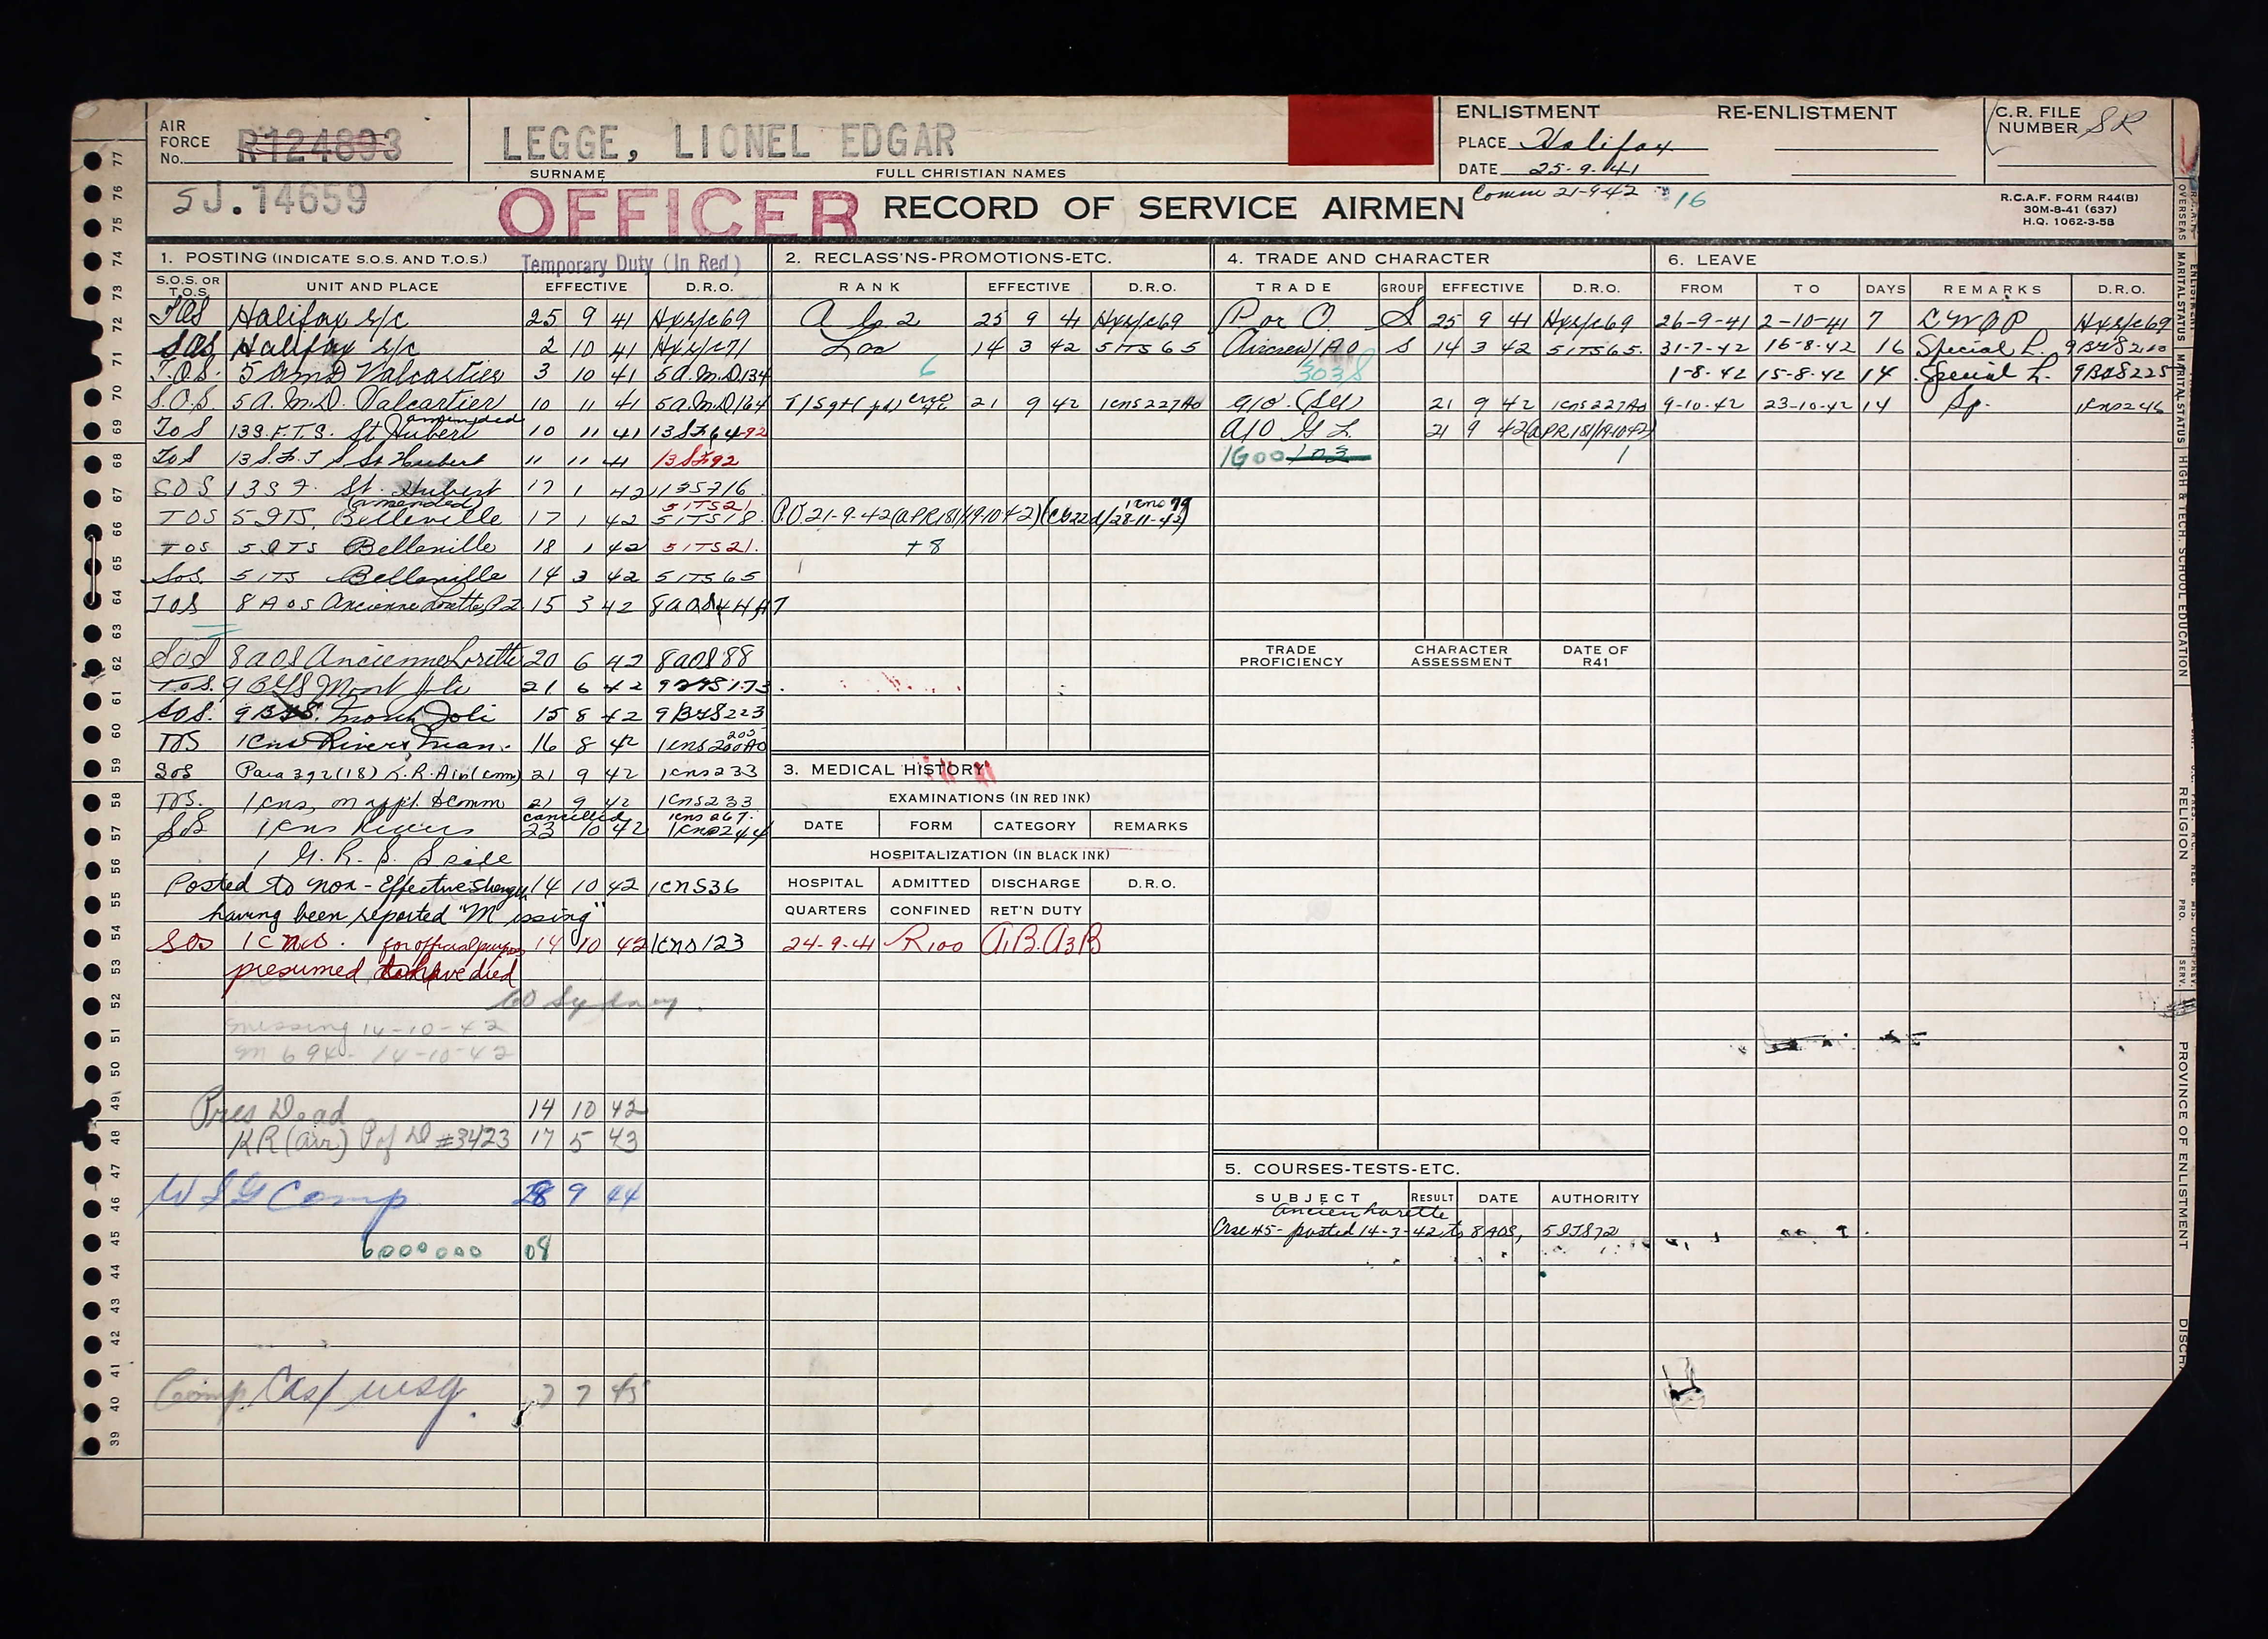 AIR FORCE No. R124893
LEGGE, LIONEL EDGAR
SURNAME FULL CHRISTIAN NAMES
ENLISTMENT RE-ENLISTMENT
PLACE Halifax
DATE 25-9-41
C.R. FILE NUMBER SR
5J.14659
OFFICER RECORD OF SERVICE AIRMEN
Comm 21-9-42 16
R.C.A.F. FORM R44(B)
30M-8-41 (637)
H.Q. 1062-3-58
1. POSTING (INDICATE S.O.S. AND T.O.S.) Temporary Duty (In Red)
S.O.S. OR T.O.S. UNIT AND PLACE EFFECTIVE D.R.O.
TOS Halifax r/c 25 9 41 Hxr/c69
SOS Halifax r/c 2 10 41 Hxr/c71
T.O.S. 5 AMD Valcartier 3 10 41 5 a.m.D134
S.O.S 5 A.M.D. Valcartier 10 11 41 5a.m.D164
amended
ToS 13S.F.T.S. St Hubert 10 11 41 13SF64-92
ToS 13 S.F.T S St Hubert 11 11 41 13SF92
SOS 13S F. St. Hubert 17 1 42
(amended) 51TS21
TOS 5 ITS. Belleville 17 1 42 51TS18.
TOS 5 ITS Belleville 18 1 42 51TS21.
SoS. 5 ITS Belleville 14 3 42 51TS65
TOS 8 A O S Ancienne Lorette, P.Q 15 3 42
SOS 8 AOS Ancienne Lorette 20 6 42 8AOS 88
TOS. 9 B&GS Mont Joli 21 6 42 9B&GS173.
SOS. 9 B&GS. Mont Joli 15 8 42 9B&GS223
205
TOS 1CNS Rivers Man. 16 8 42
SOS Para 392(18) K.R.Air(comm) 21 9 42 1CNS233
TOS. 1CNS, on appt. to Comm 21 9 42 1CNS233
cancelled 1CNS267.
SOS 1CNS Rivers 23 10 42 1CNS244
1 G. R. S.
Posted to non-Effective Strength 14 10 42 1CNS36
having been reported "Missing"
SOS 1CNS. for official purposes 14 10 42 1CNS123
presumed to have died
Sydney.
missing 14-10-42
14-10-42
Pres Dead 14 10 42
KR(air) P of D #3423 17 5 43
W S G Comp 28 9 44
6000000 08
Comp. Cas/ WSG. 7 7 45
2. RECLASS'NS-PROMOTIONS-ETC.
RANK EFFECTIVE D.R.O.
A C 2 25 9 41 Hxr/c69
Lac 14 3 42 51TS 65
6
T/Sgt(pd) 21 9 42 1CNS227AO
1CNS 79
P.O. 21-9-42(APR181/19-10-42)
+8
3. MEDICAL HISTORY
EXAMINATIONS (IN RED INK)
DATE FORM CATEGORY REMARKS
HOSPITALIZATION (IN BLACK INK)
HOSPITAL ADMITTED DISCHARGE D.R.O.
QUARTERS CONFINED RET'N DUTY
24-9-41 R100 A1B.A3B
4. TRADE AND CHARACTER
TRADE GROUP EFFECTIVE D.R.O.
P or O. S 25 9 41 Hxr/c69
Aircrew/AO S 14 3 42 51TS65.
303S
21 9 42 1CNS227AO
21 9 42(APR181/19-10-42)
1G00 103 1
TRADE PROFICIENCY CHARACTER ASSESSMENT DATE OF R41
5. COURSES-TESTS-ETC.
SUBJECT RESULT DATE AUTHORITY
Ancien Lorette
Crse 45- posted 14-3-42 to 8 AOS, 5ITS72
6. LEAVE
FROM TO DAYS REMARKS D.R.O.
26-9-41 2-10-41 7 LWOP Hxr/c69
31-7-42 16-8-42 16 Special L. 9B&GS210
1-8-42 15-8-42 14 Special L. 9B&GS225
9-10-42 23-10-42 14 Sp. 1CNS246
77
76
75
74
73
72
71
70
69
68
67
66
65
64
63
62
61
60
59
58
57
56
55
54
53
52
51
50
49
48
47
46
45
44
43
42
41
40
39
OVERSEAS
MARITAL STATUS
MARITAL STATUS
HIGH & TECH. SCHOOL EDUCATION
RELIGION
PRO.
SERV.
PROVINCE OF ENLISTMENT